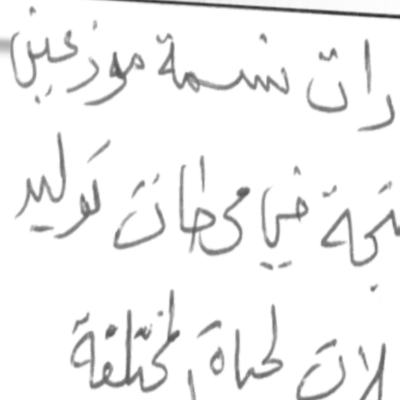 رات نسمة موزعين
تجة في محطات توليد
لات لحياة المختلفة